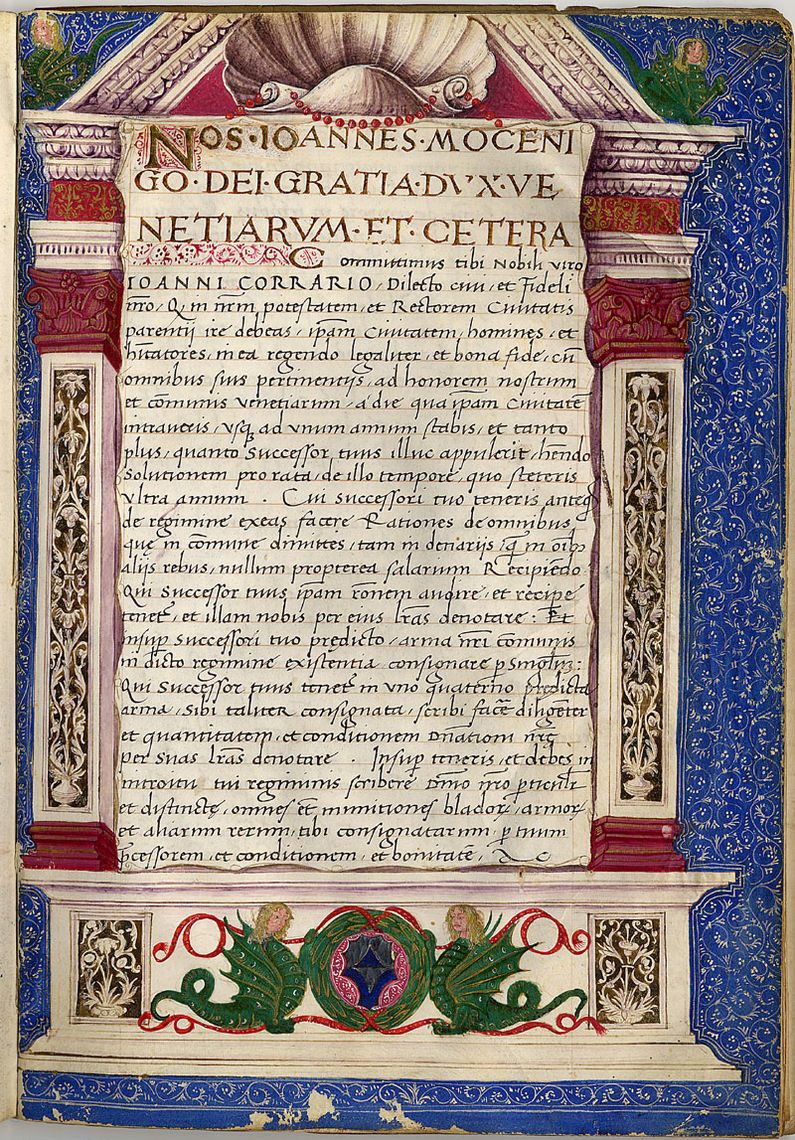 NOS·IOANNES·MOCENI
GO·DEI·GRATIA·DVX·VE
NETIARVM·ET·CETERA
Committimus tibi Nobili viro
IOANNI CORRARIO, Dilecto civi, et Fideli
nr̄o, Q, in nr̄m potestatem, et Rectorem Civitatis
parentij ire debeas, ip̄am Civitatem, homines, et
hītatores, in ea regendo legaliter, et bona fide, cū
omnibus suis pertinentijs, ad honorem nostrum
et cōmunis venetiarum, a die qua ip̄am Civitatē
intraveis, vsq, ad vnum annum stabis, et tanto
plus, quanto Successor tuus illuc appulerit, hn̄do
Solutionem pro rata, de illo tempore, quo steteris
vltra annum . Cui Successori tuo teneris anteq̄
de regimine exeas facere Rationes de omnibus,
que in cōmune dimittes, tam in denarijs, q̄ in oīb,
alijs rebus, nullum propterea salarium Recipiēdo.
Qui Successor tuus ip̄am rōnem audire, et recipe
tenet, et illam nobis per eius lr̄as denotare: Et
insup Successori tuo predicto, arma nr̄i cōmunis
in dicto regimine existentia consignare p Singlm:
Qui Successor tuus tenet in vno quaterno predicta
arma, sibi taliter consignata, scribi facē diligēter
et quantitatem, et conditionem Dn̄ationi nr̄ę
per Suas lr̄as denotare . Insup teneris, et debes in
introitu tui regiminis scribere Dn̄io nr̄o pticulr̄
et distincte, omnes et munitiones blador, armor,
et aliarum rerum, tibi consignatarum, p tuum
p̄cessorem, et conditionem, et bonitatē,